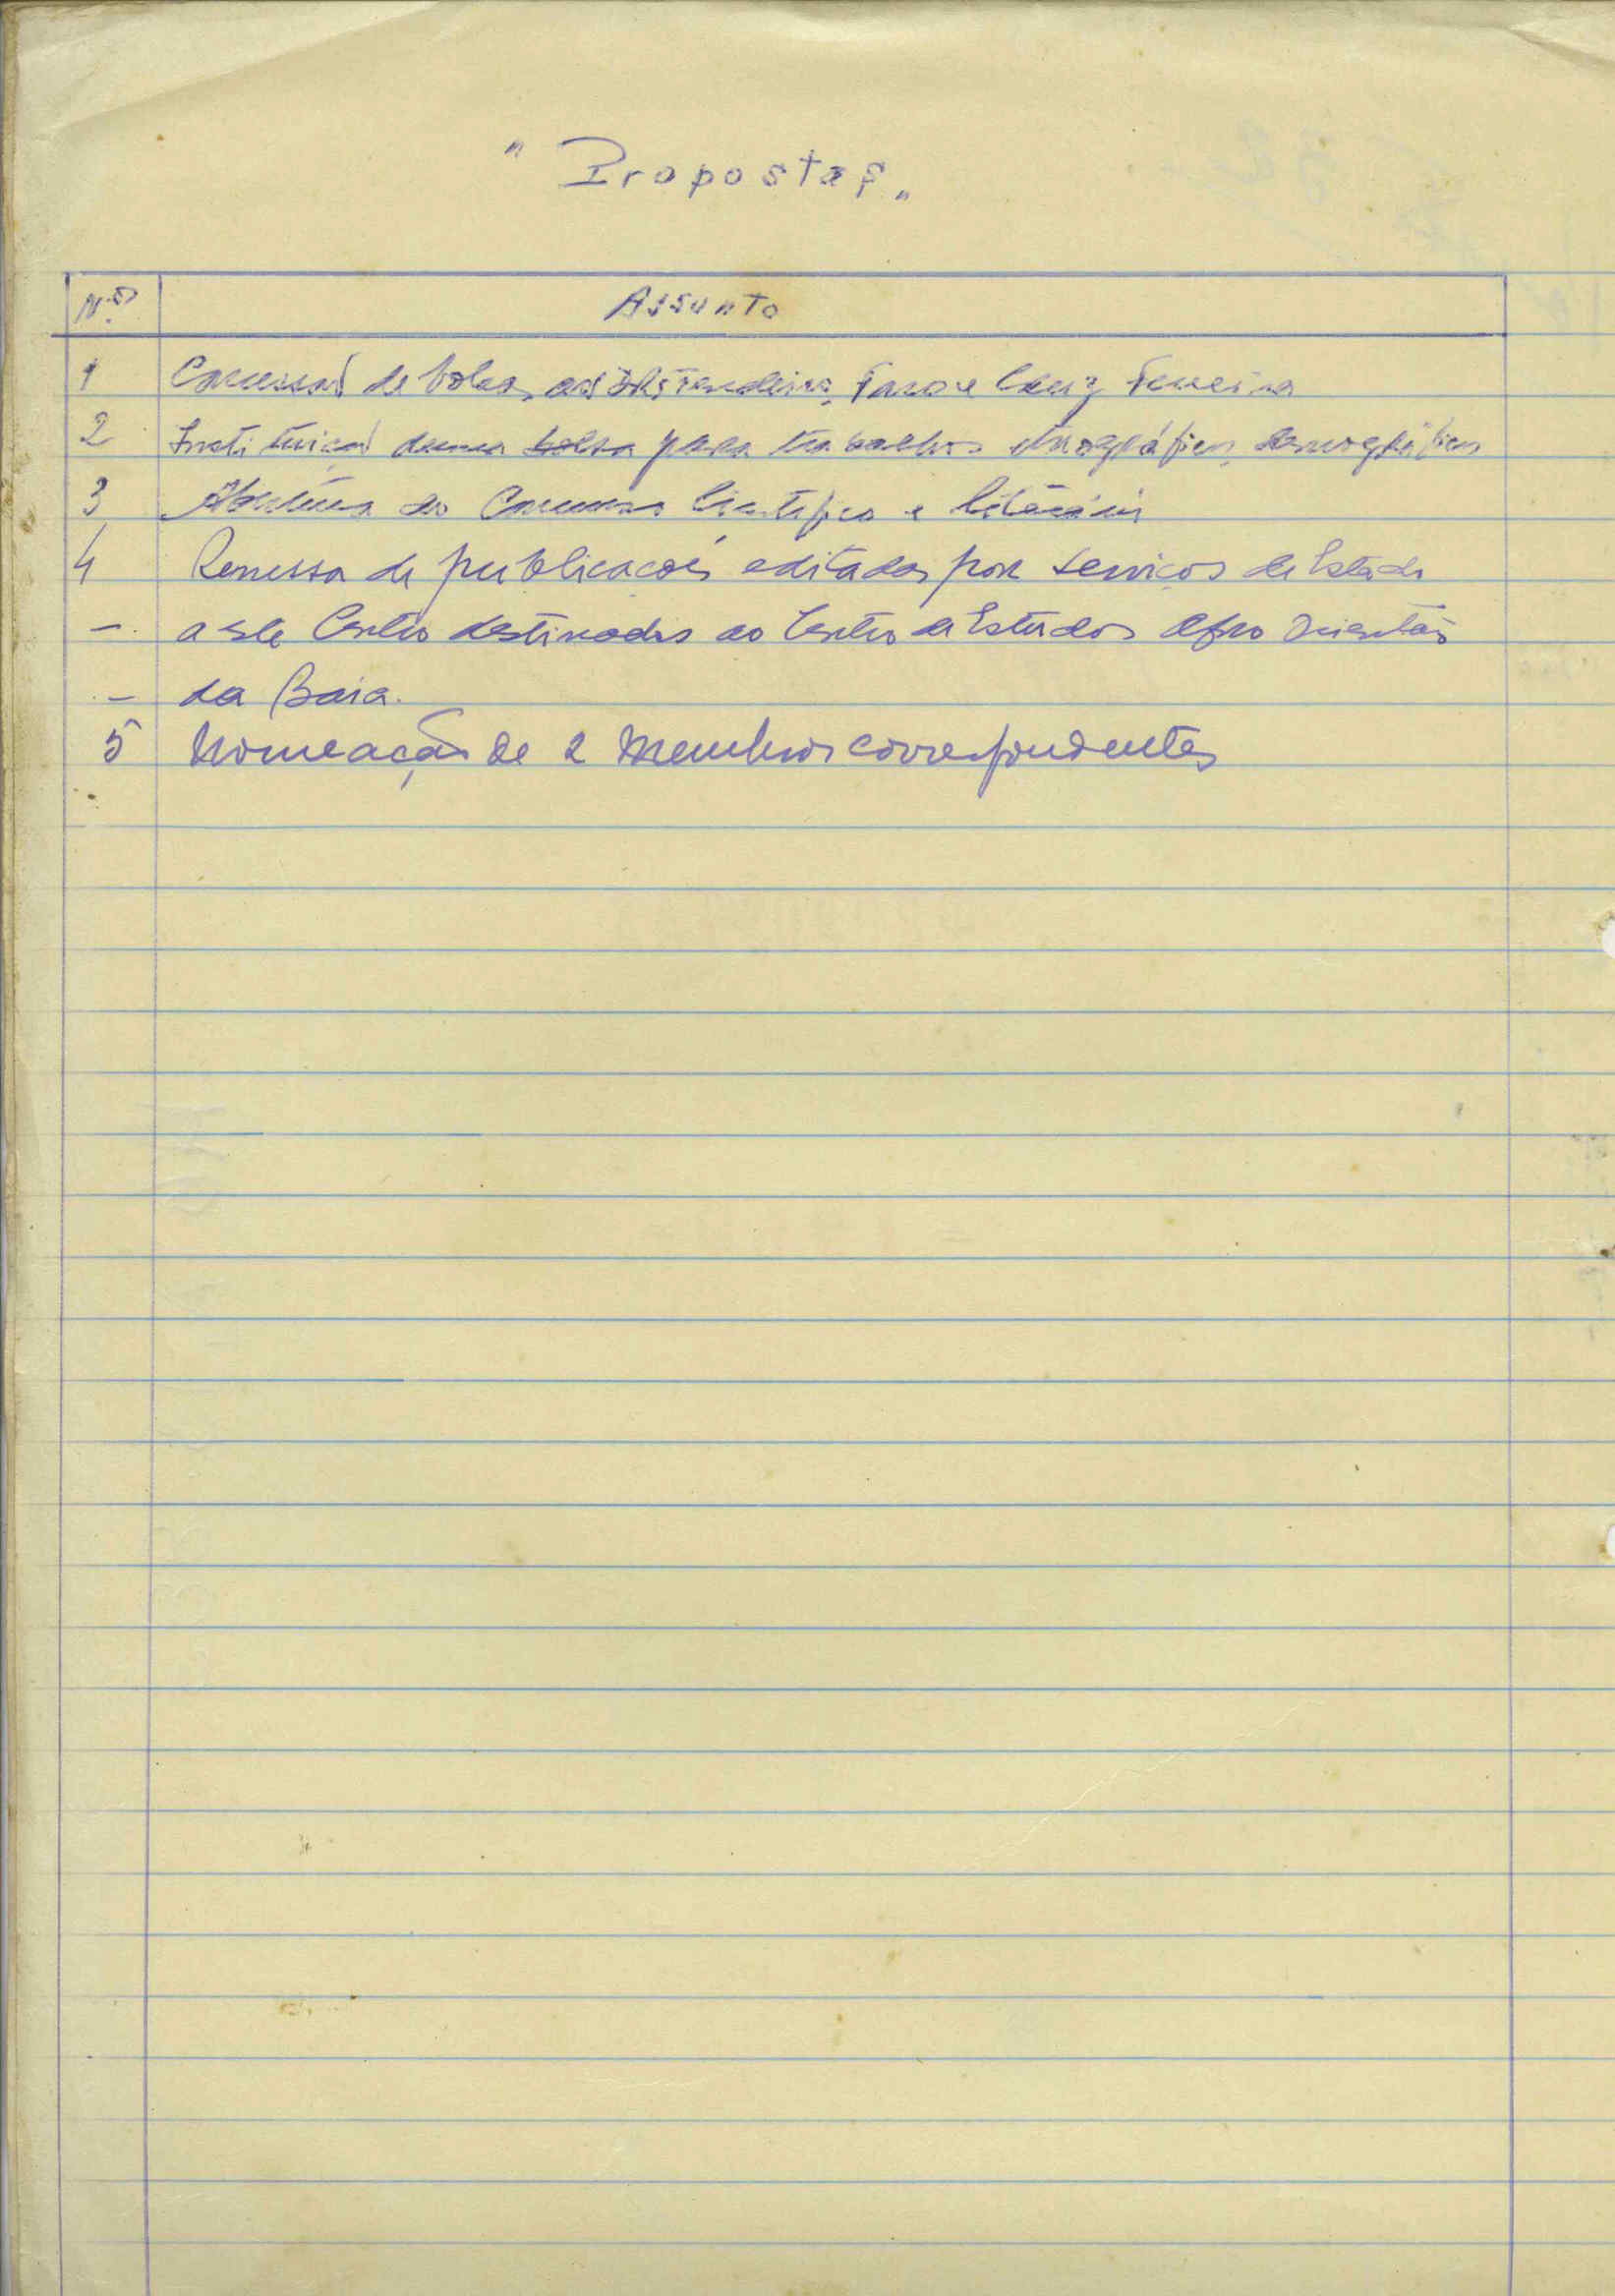 "Propostas"
Nos Assunto
1 Concessão de bolsas aos Drs Tendeiro, Faro e Cruz Ferreira
2 Instituição duma bolsa para trabalhos etnográficos, demográficos
3 Abertura do Concurso Cientifico e literário
4 Remessa de publicacoes editadas por serviços de Estado
- a este Centro destinadas ao Centro de Estudos Afro Orientais
- da Baia.
5 Nomeação de 2 Membros correspondentes